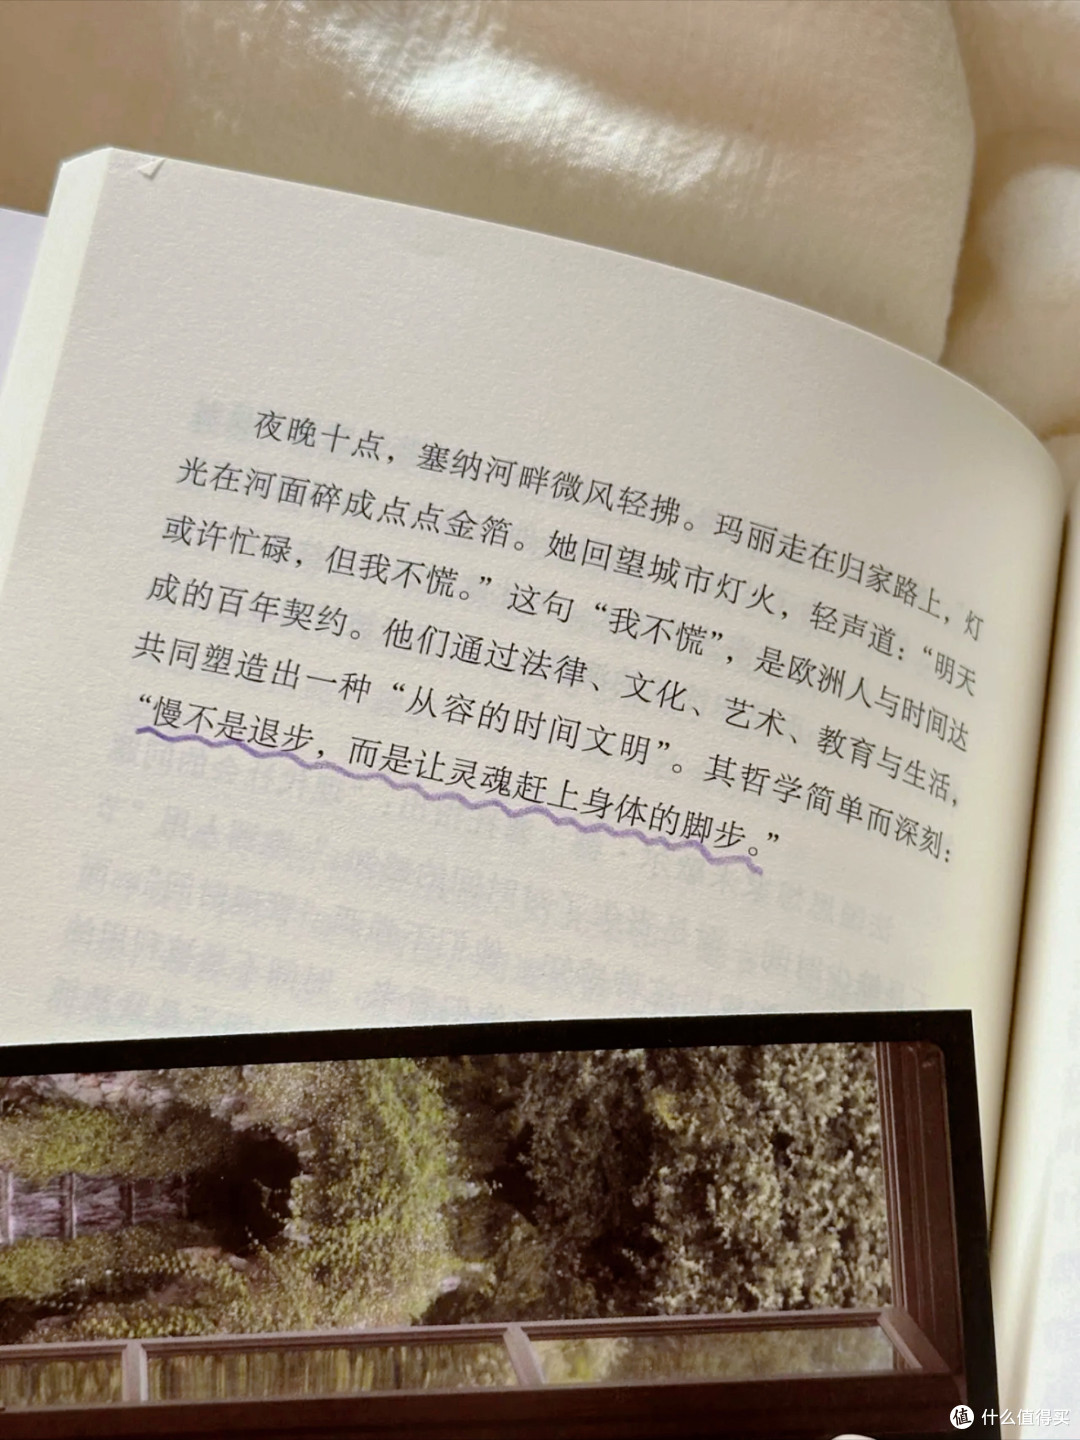 夜晚十点，塞纳河畔微风轻拂。玛丽走在归家路上，灯
光在河面碎成点点金箔。她回望城市灯火，轻声道：“明天
或许忙碌，但我不慌。”这句“我不慌”，是欧洲人与时间达
成的百年契约。他们通过法律、文化、艺术、教育与生活，
共同塑造出一种“从容的时间文明”。其哲学简单而深刻：
“慢不是退步，而是让灵魂赶上身体的脚步。”
值 什么值得买